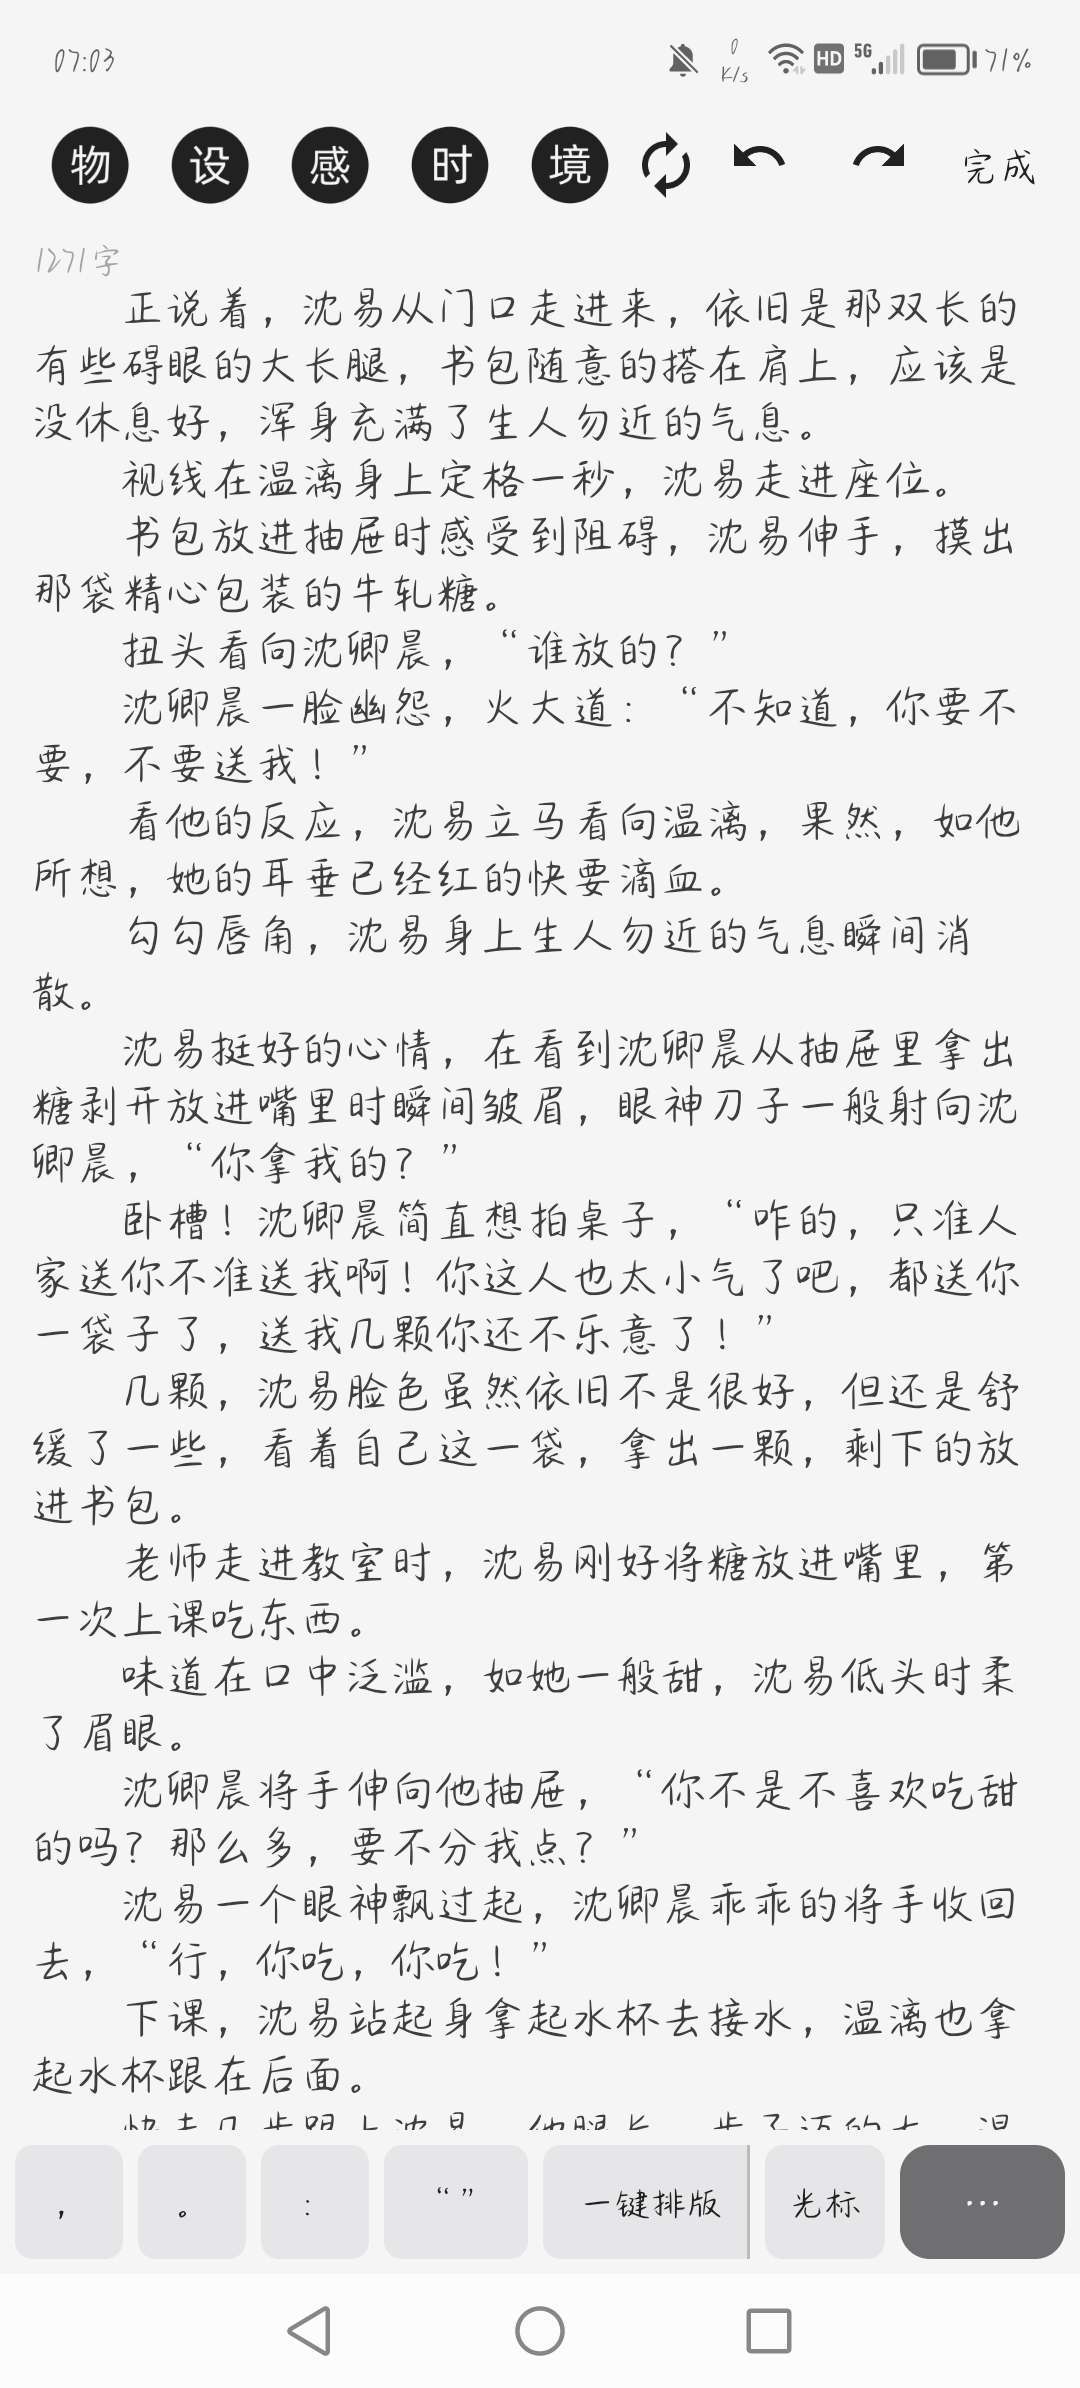 07:03
0
K/s
HD
5G
71%
物 设 感 时 境 完成
1271字
正说着，沈易从门口走进来，依旧是那双长的
有些碍眼的大长腿，书包随意的搭在肩上，应该是
没休息好，浑身充满了生人勿近的气息。
视线在温漓身上定格一秒，沈易走进座位。
书包放进抽屉时感受到阻碍，沈易伸手，摸出
那袋精心包装的牛轧糖。
扭头看向沈卿晨，“谁放的？”
沈卿晨一脸幽怨，火大道：“不知道，你要不
要，不要送我！”
看他的反应，沈易立马看向温漓，果然，如他
所想，她的耳垂已经红的快要滴血。
勾勾唇角，沈易身上生人勿近的气息瞬间消
散。
沈易挺好的心情，在看到沈卿晨从抽屉里拿出
糖剥开放进嘴里时瞬间皱眉，眼神刀子一般射向沈
卿晨，“你拿我的？”
卧槽！沈卿晨简直想拍桌子，“咋的，只准人
家送你不准送我啊！你这人也太小气了吧，都送你
一袋子了，送我几颗你还不乐意了！”
几颗，沈易脸色虽然依旧不是很好，但还是舒
缓了一些，看着自己这一袋，拿出一颗，剩下的放
进书包。
老师走进教室时，沈易刚好将糖放进嘴里，第
一次上课吃东西。
味道在口中泛滥，如她一般甜，沈易低头时柔
了眉眼。
沈卿晨将手伸向他抽屉，“你不是不喜欢吃甜
的吗？那么多，要不分我点？”
沈易一个眼神飘过起，沈卿晨乖乖的将手收回
去，“行，你吃，你吃！”
下课，沈易站起身拿起水杯去接水，温漓也拿
起水杯跟在后面。
快走几步跟上沈易，他腿长，步子迈的大，温
， 。 ： “” 一键排版 光标 ···